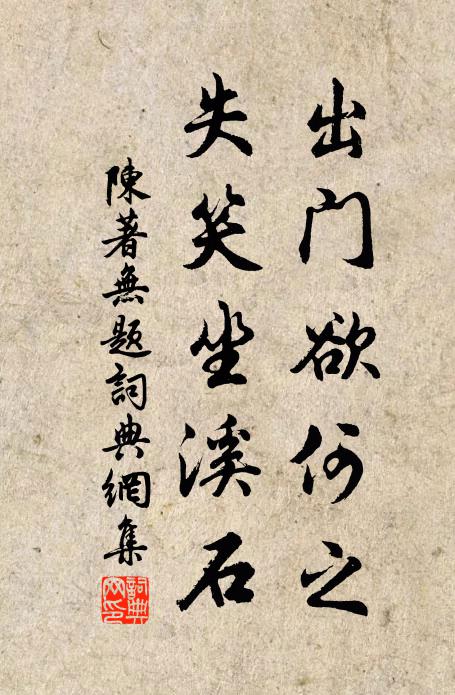 出门欲何之
失笑坐溪石
陳著無題詞典網集
詞典网印